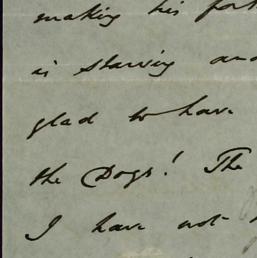 making his for
is starving and
glad to have
the Dogs! The
I have not